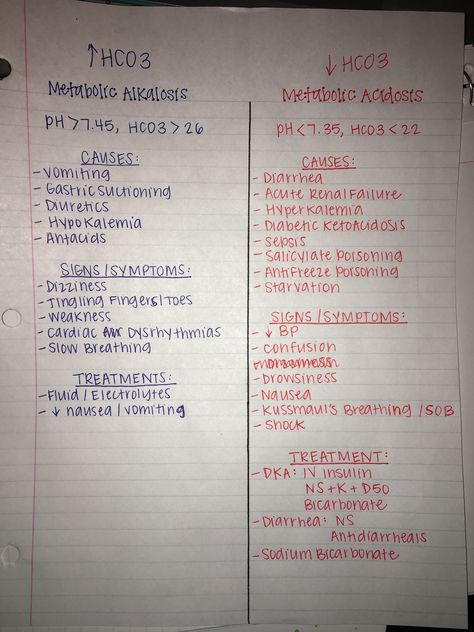 ↑HCO3
Metabolic Alkalosis
pH >7.45, HCO3 > 26
CAUSES:
- Vomiting
- Gastric Suctioning
- Diuretics
- Hypokalemia
- Antacids
SIGNS/SYMPTOMS:
- Dizziness
- Tingling Fingers/Toes
- Weakness
- Cardiac Dysrhythmias
- Slow Breathing
TREATMENTS:
- Fluid/Electrolytes
- ↓ nausea/vomiting
↓ HCO3
Metabolic Acidosis
pH <7.35, HCO3 < 22
CAUSES:
- Diarrhea
- Acute Renal Failure
- Hyperkalemia
- Diabetic Ketoacidosis
- Sepsis
- Salicylate Poisoning
- Antifreeze Poisoning
- Starvation
SIGNS/SYMPTOMS:
- ↓ BP
- Confusion
- Drowsiness
- Nausea
- Kussmaul's Breathing/SOB
- Shock
TREATMENT:
- DKA: IV insulin
NS+K+D50
Bicarbonate
- Diarrhea: NS
Antidiarrheals
- Sodium Bicarbonate